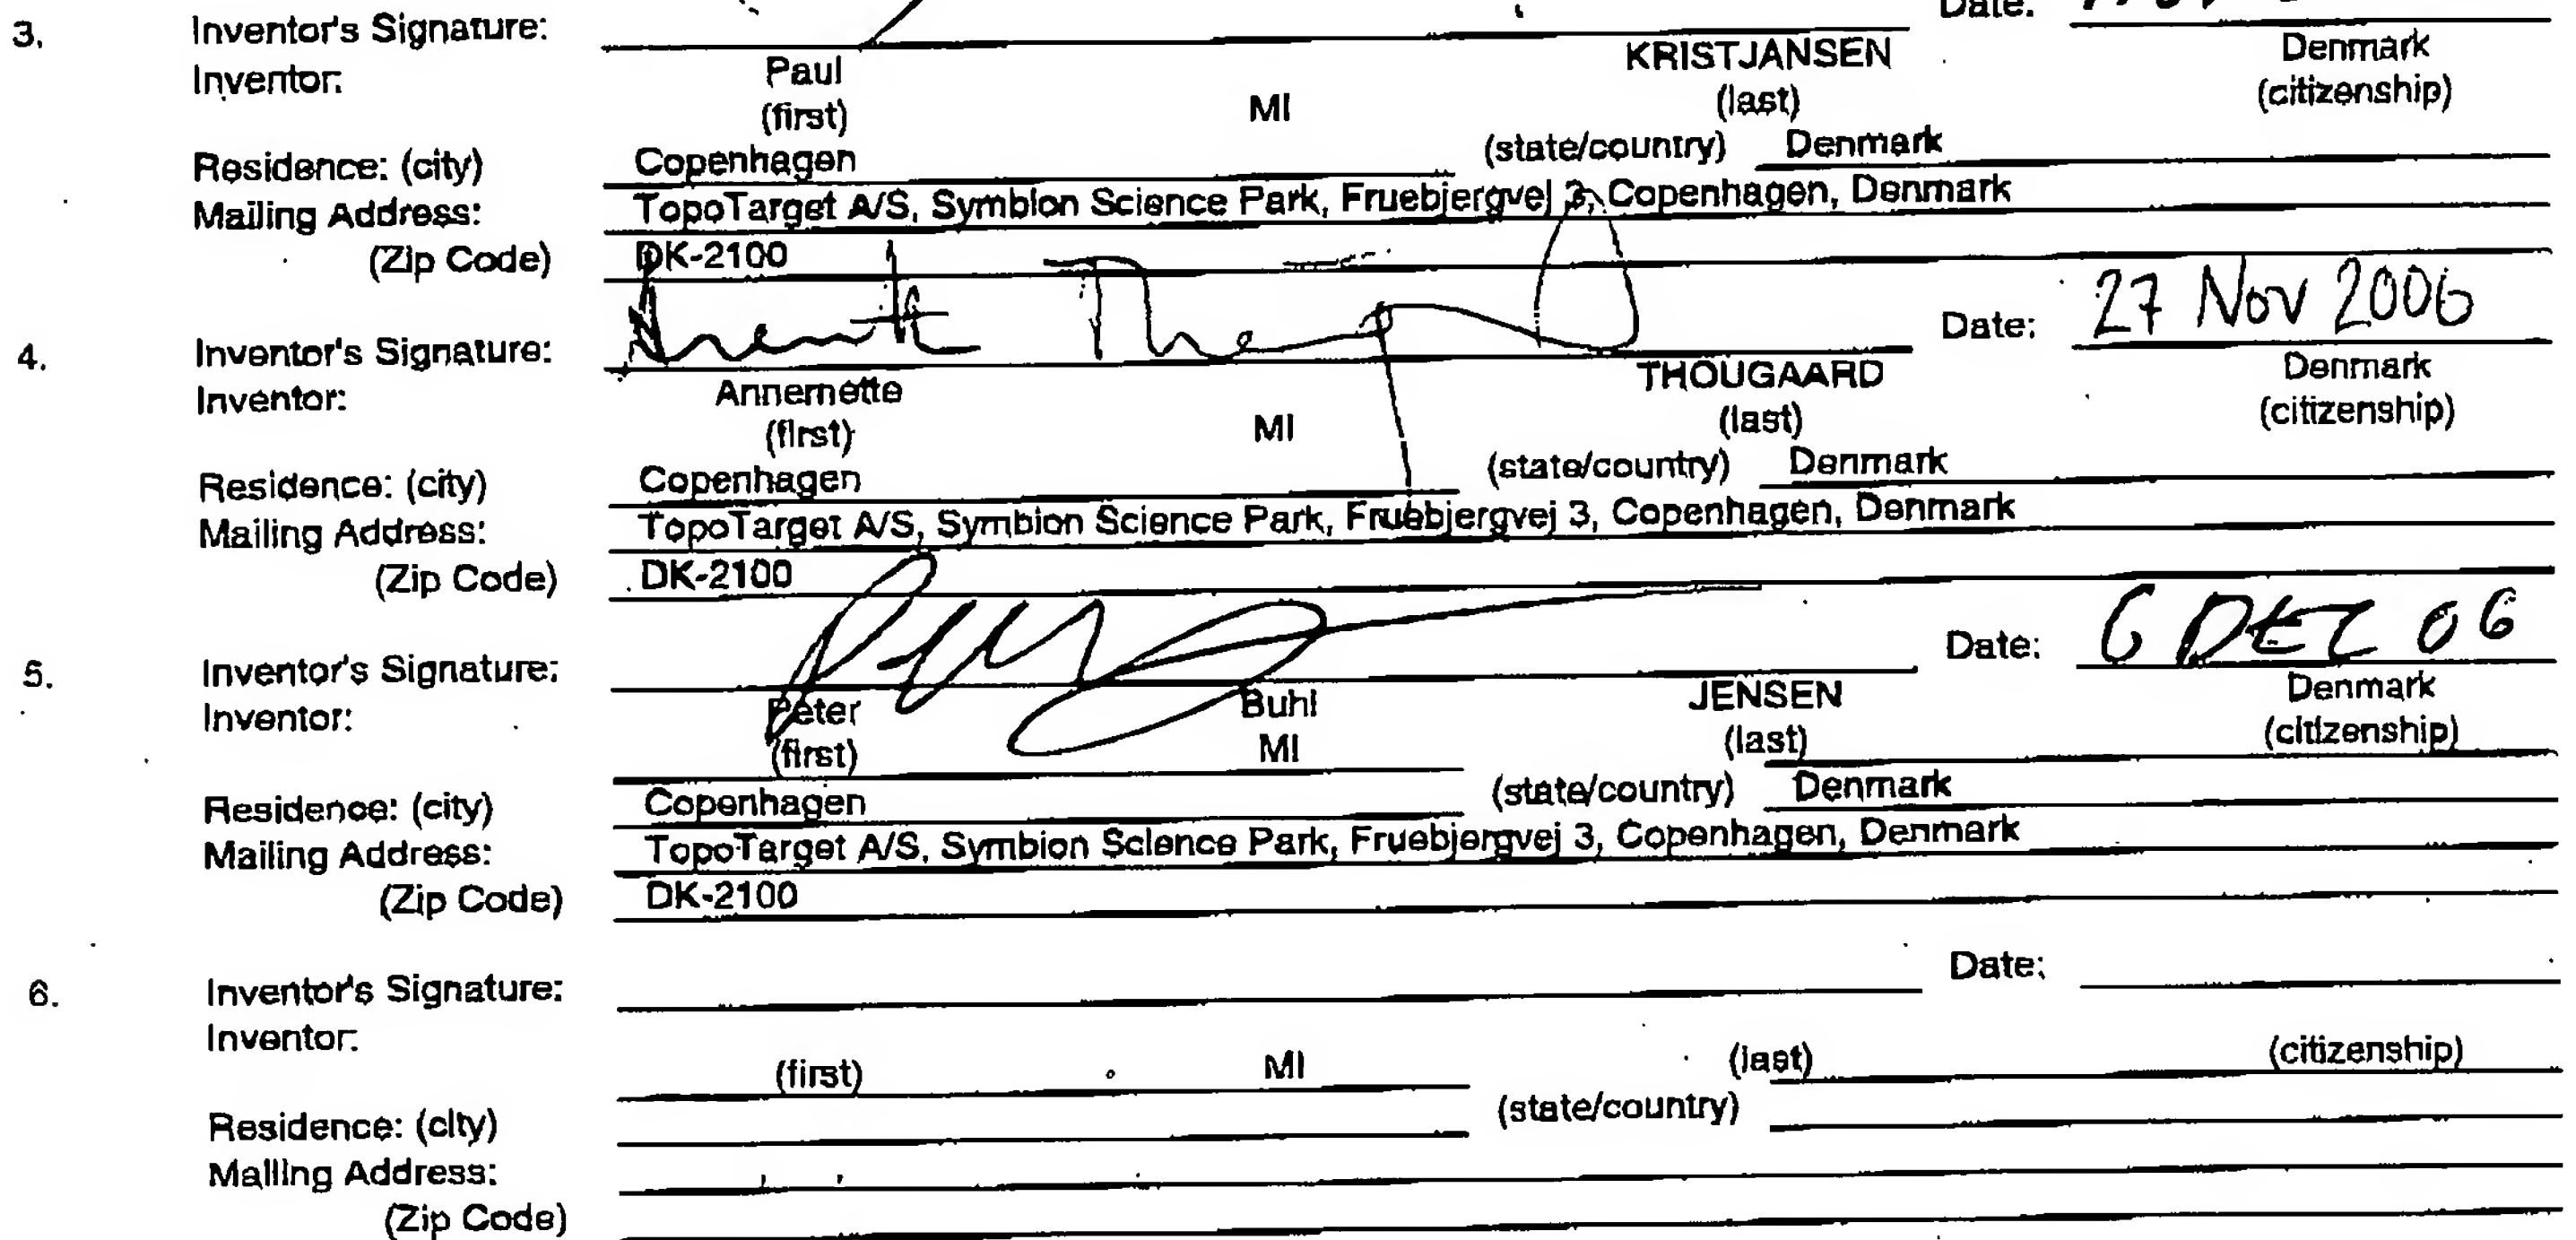 3. Inventor's Signature: Date:
Inventor: Paul KRISTJANSEN Denmark
(first) MI (last) (citizenship)
Residence: (city) Copenhagen (state/country) Denmark
Mailing Address: TopoTarget A/S, Symbion Science Park, Fruebjergvej 3, Copenhagen, Denmark
(Zip Code) DK-2100
4. Inventor's Signature: Date: 27 Nov 2006
Inventor: Annemette THOUGAARD Denmark
(first) MI (last) (citizenship)
Residence: (city) Copenhagen (state/country) Denmark
Mailing Address: TopoTarget A/S, Symbion Science Park, Fruebjergvej 3, Copenhagen, Denmark
(Zip Code) DK-2100
5. Inventor's Signature: Date: 6 DEC 06
Inventor: Peter Buhl JENSEN Denmark
(first) MI (last) (citizenship)
Residence: (city) Copenhagen (state/country) Denmark
Mailing Address: TopoTarget A/S, Symbion Science Park, Fruebjergvej 3, Copenhagen, Denmark
(Zip Code) DK-2100
6. Inventor's Signature: Date:
Inventor:
(first) MI (last) (citizenship)
Residence: (city) (state/country)
Mailing Address:
(Zip Code)